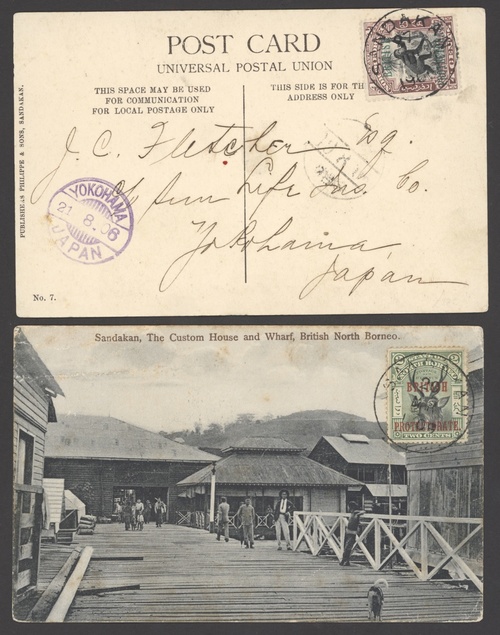 POST CARD
UNIVERSAL POSTAL UNION
THIS SPACE MAY BE USED
FOR COMMUNICATION
FOR LOCAL POSTAGE ONLY
THIS SIDE IS FOR TH
ADDRESS ONLY
SANDAKAN
J. C. Fletcher Esq.
c/o Sun Life Ins. Co.
Yokohama
Japan
YOKOHAMA
21.8.06
JAPAN
PUBLISHERS PHILIPPE & SONS, SANDAKAN.
No. 7.
Sandakan, The Custom House and Wharf, British North Borneo.
BRITISH
PROTECTORATE.
TWO CENTS